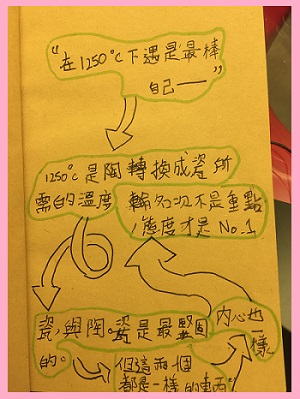 "在1250°C下遇是最棒"
自己——
1250°C是陶轉換成瓷所
需的溫度
輸多次不是重點
態度才是 No.1
瓷與陶。瓷是最堅固
的。
但這兩個
都是一樣的東西"
內心也
一樣